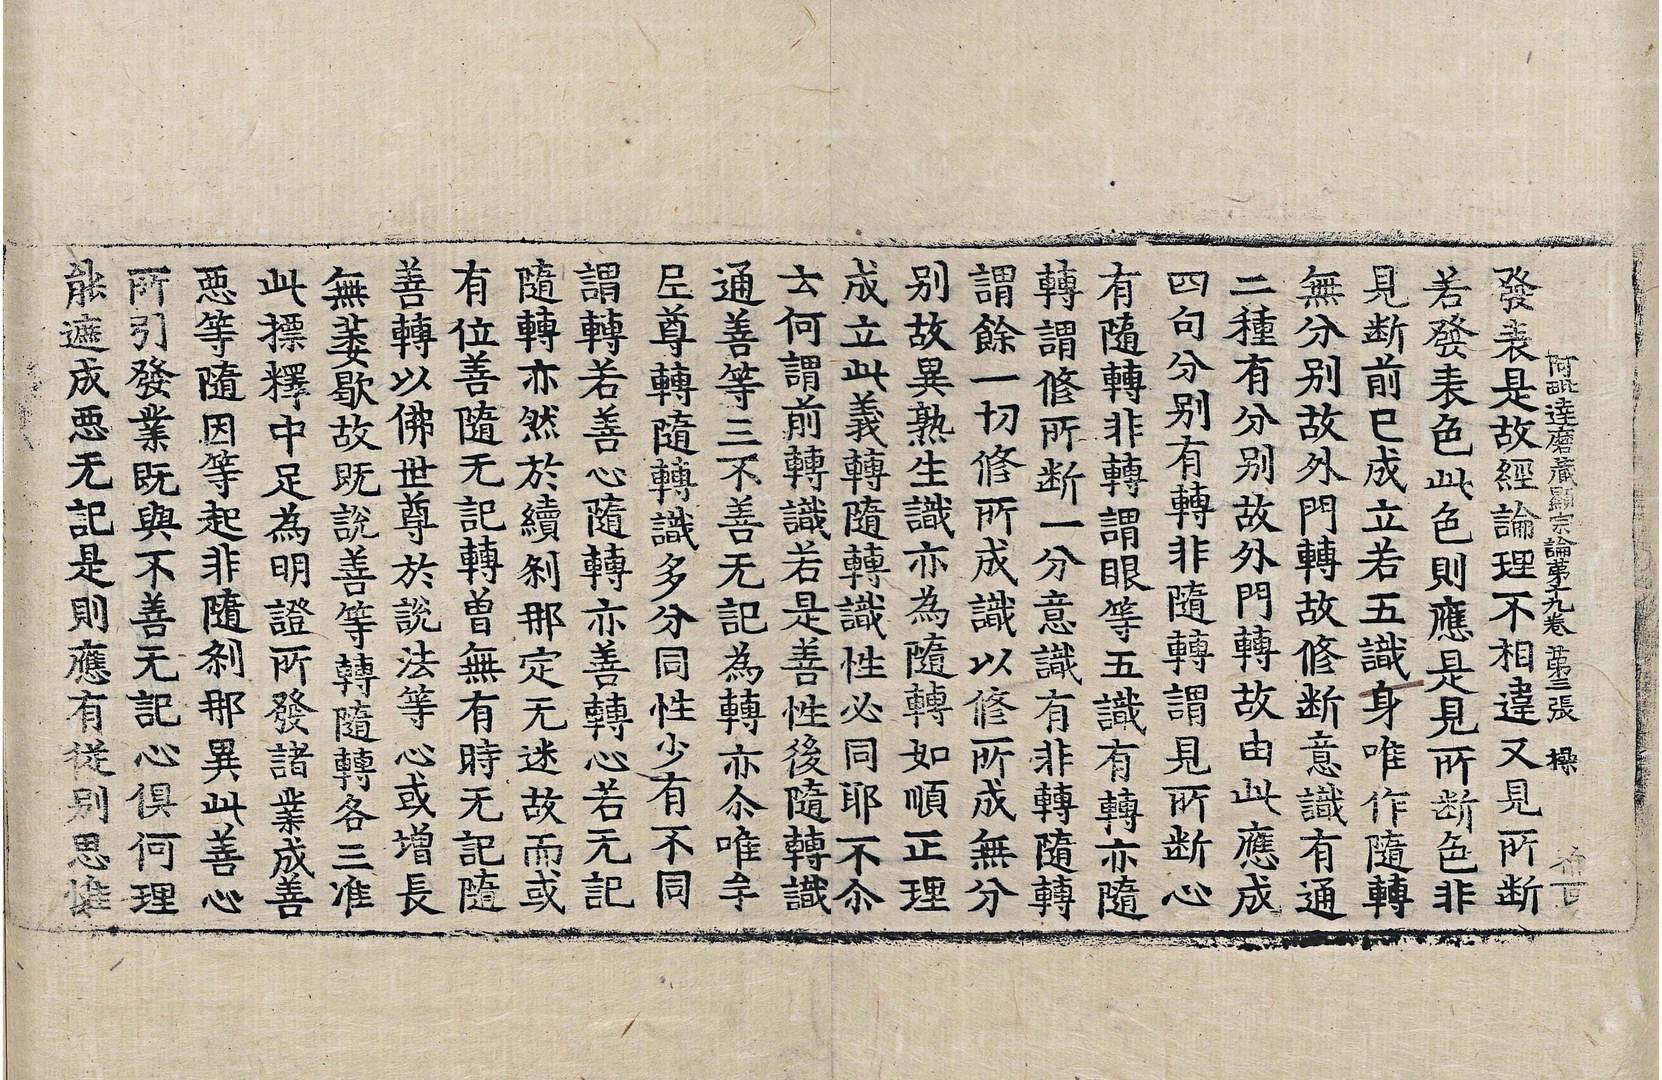 阿毗達磨藏顯宗論苐十九卷 苐三張 操
發表是故經論理不相違又見所断
若發表色此色則應是見所断色非
見断前已成立若五識身唯作隨轉
無分别故外門轉故修断意識有通
二種有分别故外門轉故由此應成
四句分别有轉非隨轉謂見所断心
有隨轉非轉謂眼等五識有轉亦隨
轉謂修所断一分意識有非轉隨轉
謂餘一切修所成識以修所成無分
别故異熟生識亦為隨轉如順正理
成立此義轉隨轉識性必同耶不尒
云何謂前轉識若是善性後隨轉識
通善等三不善无記為轉亦尒唯牟
𡰱尊轉隨轉識多分同性少有不同
謂轉若善心隨轉亦善轉心若无記
隨轉亦然於續刹那定无迷故而或
有位善隨无記轉曽無有時无記隨
善轉以佛世尊於說法等心或增長
無萎歇故既說善等轉隨轉各三准
此摽釋中足為明證所發諸業成善
悪等隨因等起非隨刹那異此善心
所引發業既與不善无記心俱何理
能遮成悪无記是則應有従别思惟